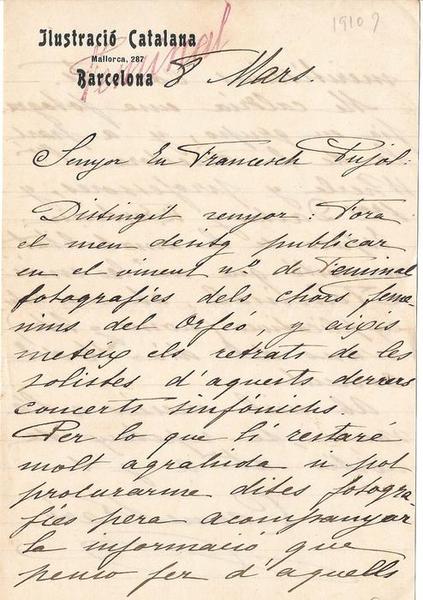 1910?
Ilustració Catalana
Mallorca, 287
Barcelona 8 Mars.
Feminal
Senyor En Francesch Pujol:
Distingit senyor: Fora
el meu desitg publicar
en el vinent nº de Feminal
fotografies dels chors feme-
nins del Orfeó, y aixis
meteix els retrats de les
solistes d'aquests derrers
concerts sinfónichs.
Per lo que li restaré
molt agrahida si pot
procurarme dites fotogra-
fies pera acompanyar
la informació que
penso fer d'aquells